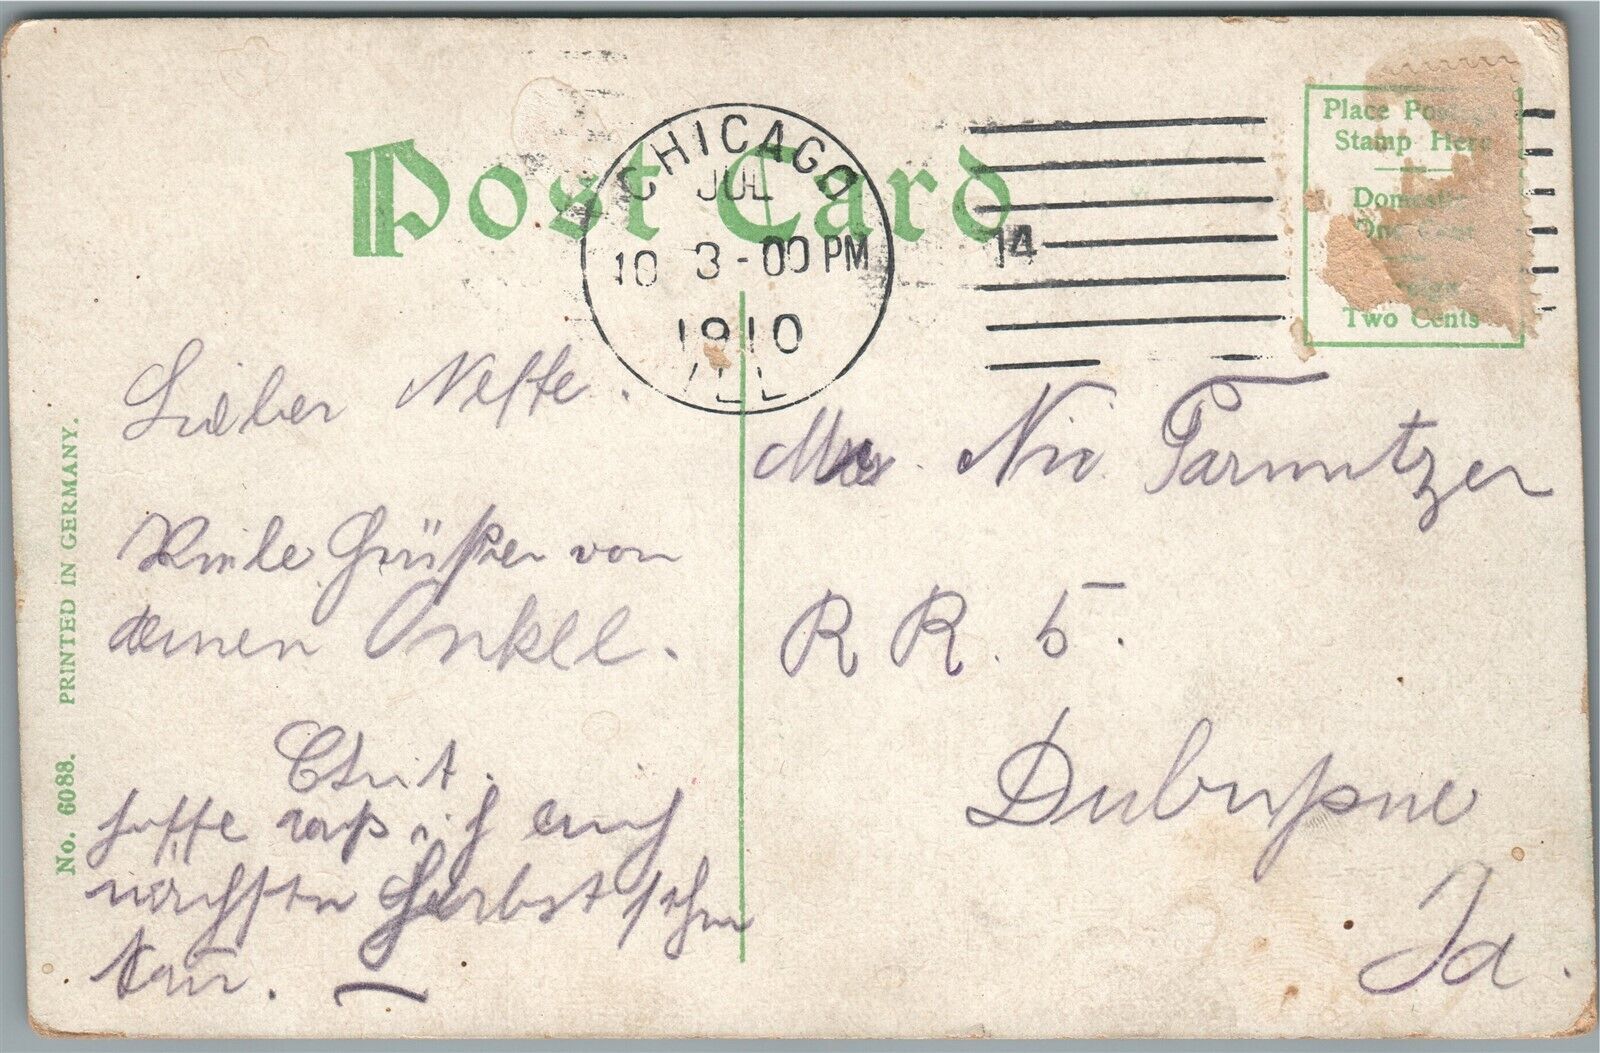 Post Card
CHICAGO
JUL
10 3-00 PM
1910
ILL
14
Place Postage
Stamp Here
Domestic
One Cent
Two Cents
Lieber Neffe.
Viele Grüße von
deinen Onkel.
hoffe daß ich euch
nächsten Herbst sehen
kan.
Nic
R R. 5.
Dubuque
Ia.
No. 6088. PRINTED IN GERMANY.